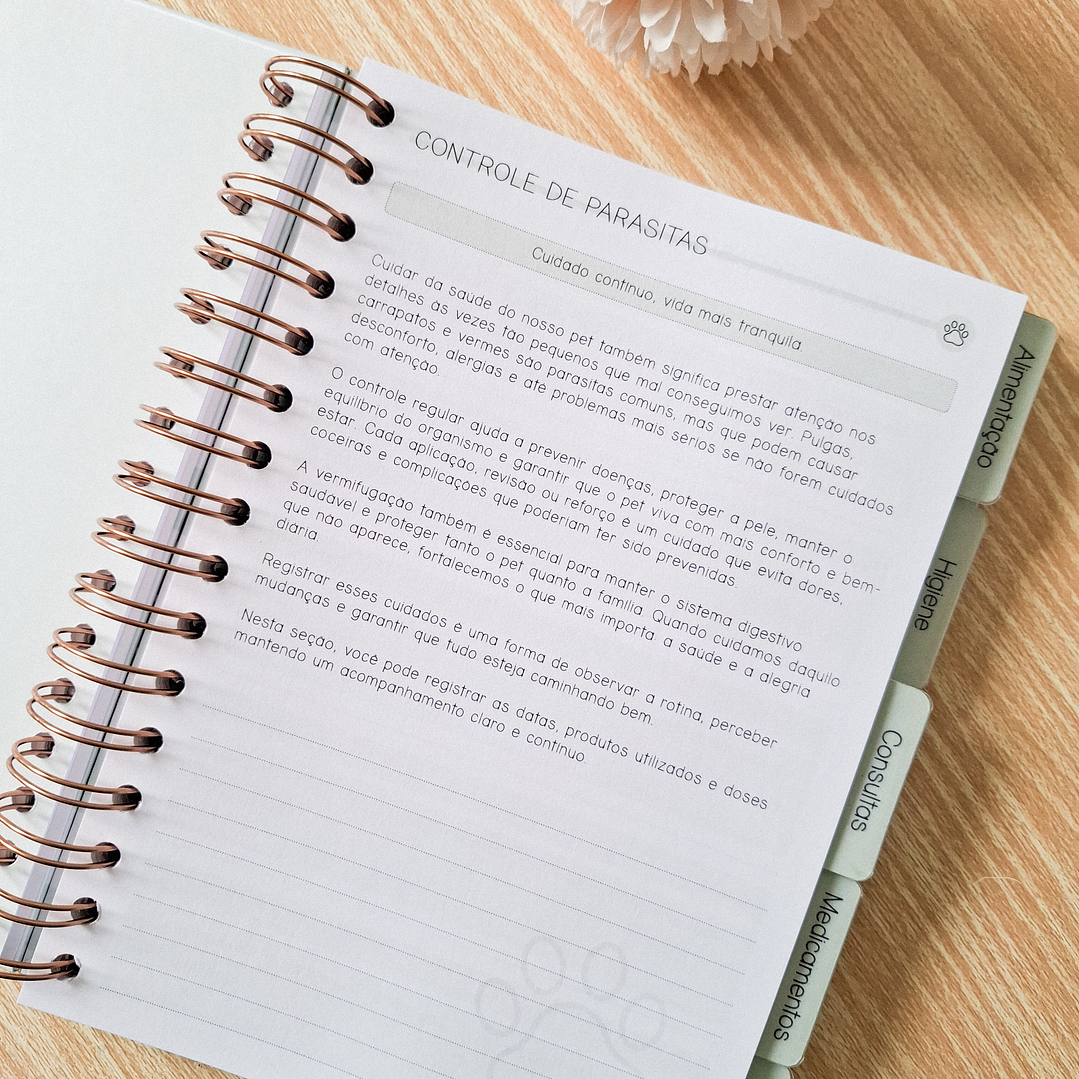 CONTROLE DE PARASITAS
Cuidado contínuo, vida mais tranquila
Cuidar da saúde do nosso pet também significa prestar atenção nos
detalhes às vezes tão pequenos que mal conseguimos ver. Pulgas,
carrapatos e vermes são parasitas comuns, mas que podem causar
desconforto, alergias e até problemas mais sérios se não forem cuidados
com atenção.
O controle regular ajuda a prevenir doenças, proteger a pele, manter o
equilíbrio do organismo e garantir que o pet viva com mais conforto e bem-
estar. Cada aplicação, revisão ou reforço é um cuidado que evita dores,
coceiras e complicações que poderiam ter sido prevenidas.
A vermifugação também é essencial para manter o sistema digestivo
saudável e proteger tanto o pet quanto a família. Quando cuidamos daquilo
que não aparece, fortalecemos o que mais importa: a saúde e a alegria
diária.
Registrar esses cuidados é uma forma de observar a rotina, perceber
mudanças e garantir que tudo esteja caminhando bem.
Nesta seção, você pode registrar as datas, produtos utilizados e doses
mantendo um acompanhamento claro e contínuo.
Alimentação
Higiene
Consultas
Medicamentos